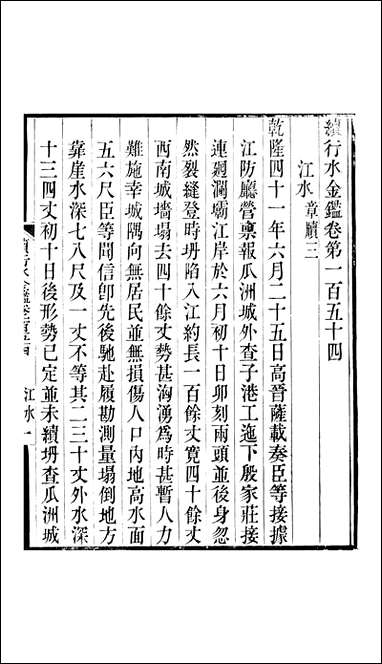 續行水金鑑卷第一百五十四
江水 章牘三
乾隆四十一年六月二十五日高晉薩載奏臣等接據
江防廳營稟報瓜洲城外查子港工迤下殷家莊接
連迴瀾壩江岸於六月初十日卯刻兩頭並後身忽
然裂縫登時坍陷入江約長一百餘丈寬四十餘丈
西南城墻塌去四十餘丈勢甚洶湧爲時甚暫人力
難施幸城隅向無居民並無損傷人口內地高水面
五六尺臣等聞信卽先後馳赴履勘測量塌倒地方
靠崖水深七八尺及一丈不等其二三十丈外水深
十三四丈初十日後形勢已定並未續坍查瓜洲城
江水 一